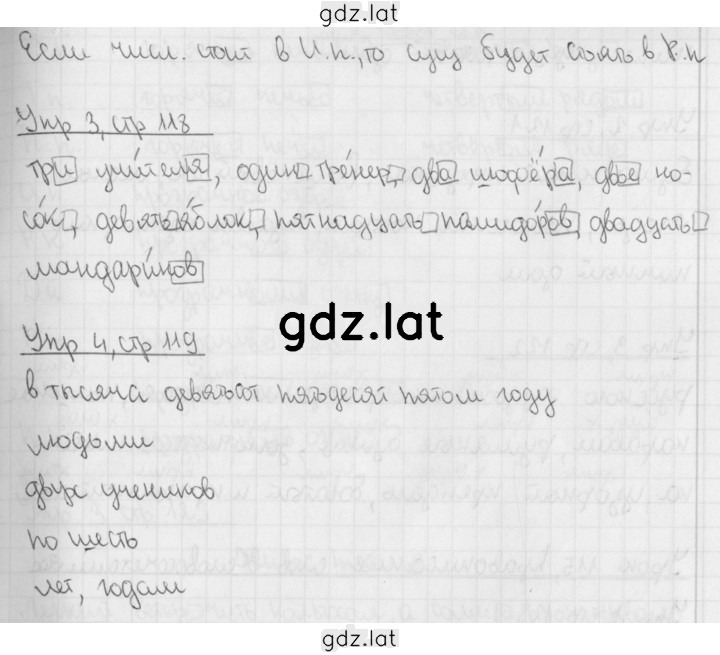 gdz.lat
Если числ. стоит в И.п., то сущ будет стоять в Р.п
Упр 3, стр 118
три учи́теля, один тре́нер, два шофёра, двое но-
со́к, девять я́блок, пятнадцать памидо́ров, двадцать
мандари́нов
gdz.lat
Упр 4, стр 119
в тысяча девятьсот пятьдесят пятом году
людьми
двух учеников
по шесть
лет, годам
gdz.lat